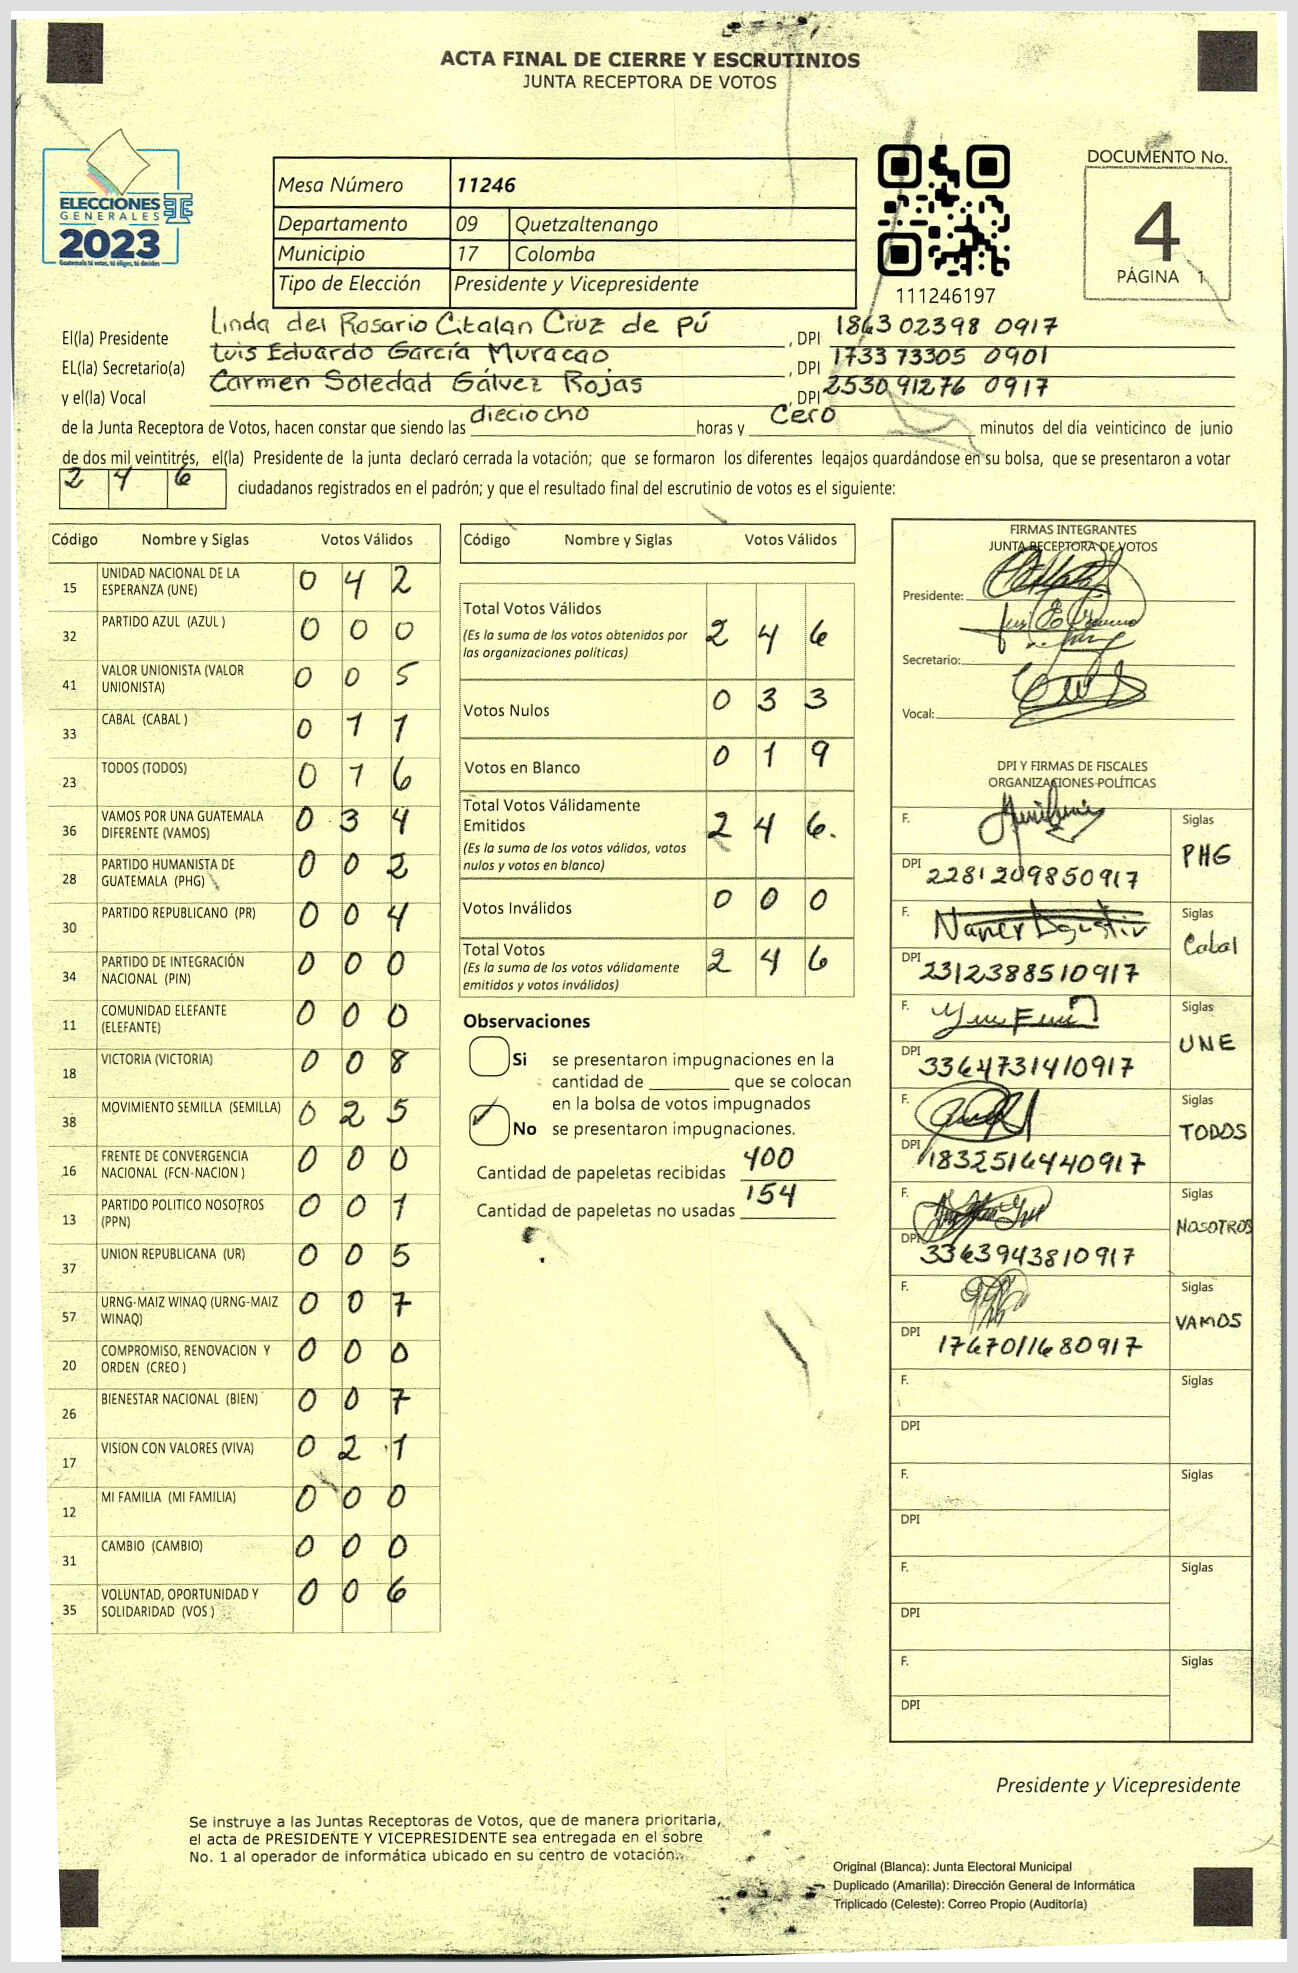 ACTA FINAL DE CIERRE Y ESCRUTINIOS
JUNTA RECEPTORA DE VOTOS
ELECCIONES
GENERALES
2023
Guatemala tú votas, tú eliges, tú decides
Mesa Número 11246
Departamento 09 Quetzaltenango
Municipio 17 Colomba
Tipo de Elección Presidente y Vicepresidente
111246197
DOCUMENTO No.
4
PÁGINA 1
El(la) Presidente Linda del Rosario Citalan Cruz de Pú, DPI 1863 02398 0917
EL(la) Secretario(a) Luis Eduardo García Muracao, DPI 1733 73305 0901
y el(la) Vocal Carmen Soledad Gálvez Rojas, DPI 2530 91276 0917
de la Junta Receptora de Votos, hacen constar que siendo las dieciocho horas y Cero minutos del día veinticinco de junio
de dos mil veintitrés, el(la) Presidente de la junta declaró cerrada la votación; que se formaron los diferentes legajos guardándose en su bolsa, que se presentaron a votar
2 4 6 ciudadanos registrados en el padrón; y que el resultado final del escrutinio de votos es el siguiente:
Código Nombre y Siglas Votos Válidos
15 UNIDAD NACIONAL DE LA ESPERANZA (UNE) 0 4 2
32 PARTIDO AZUL (AZUL ) 0 0 0
41 VALOR UNIONISTA (VALOR UNIONISTA) 0 0 5
33 CABAL (CABAL ) 0 1 1
23 TODOS (TODOS) 0 1 6
36 VAMOS POR UNA GUATEMALA DIFERENTE (VAMOS) 0 3 4
28 PARTIDO HUMANISTA DE GUATEMALA (PHG) 0 0 2
30 PARTIDO REPUBLICANO (PR) 0 0 4
34 PARTIDO DE INTEGRACIÓN NACIONAL (PIN) 0 0 0
11 COMUNIDAD ELEFANTE (ELEFANTE) 0 0 0
18 VICTORIA (VICTORIA) 0 0 8
38 MOVIMIENTO SEMILLA (SEMILLA) 0 2 5
16 FRENTE DE CONVERGENCIA NACIONAL (FCN-NACION ) 0 0 0
13 PARTIDO POLITICO NOSOTROS (PPN) 0 0 1
37 UNION REPUBLICANA (UR) 0 0 5
57 URNG-MAIZ WINAQ (URNG-MAIZ WINAQ) 0 0 7
20 COMPROMISO, RENOVACION Y ORDEN (CREO ) 0 0 0
26 BIENESTAR NACIONAL (BIEN) 0 0 7
17 VISION CON VALORES (VIVA) 0 2 1
12 MI FAMILIA (MI FAMILIA) 0 0 0
31 CAMBIO (CAMBIO) 0 0 0
35 VOLUNTAD, OPORTUNIDAD Y SOLIDARIDAD (VOS ) 0 0 6
Código Nombre y Siglas Votos Válidos
Total Votos Válidos 2 4 6
(Es la suma de los votos obtenidos por
las organizaciones políticas)
Votos Nulos 0 3 3
Votos en Blanco 0 1 9
Total Votos Válidamente
Emitidos 2 4 6.
(Es la suma de los votos válidos, votos
nulos y votos en blanco)
Votos Inválidos 0 0 0
Total Votos 2 4 6
(Es la suma de los votos válidamente
emitidos y votos inválidos)
Observaciones
Si se presentaron impugnaciones en la
cantidad de ________ que se colocan
en la bolsa de votos impugnados
No se presentaron impugnaciones.
Cantidad de papeletas recibidas 400
Cantidad de papeletas no usadas 154
FIRMAS INTEGRANTES
JUNTA RECEPTORA DE VOTOS
Presidente:
Secretario:
Vocal:
DPI Y FIRMAS DE FISCALES
ORGANIZACIONES POLÍTICAS
F. Siglas
PHG
DPI 2281209850917
F. Siglas
Cabal
DPI 2312388510917
F. Siglas
UNE
DPI 3364731410917
F. Siglas
TODOS
DPI 1832516440917
F. Siglas
NOSOTROS
DPI 3363943810917
F. Siglas
VAMOS
DPI 1767011680917
F. Siglas
DPI
F. Siglas
DPI
F. Siglas
DPI
F. Siglas
DPI
Presidente y Vicepresidente
Se instruye a las Juntas Receptoras de Votos, que de manera prioritaria,
el acta de PRESIDENTE Y VICEPRESIDENTE sea entregada en el sobre
No. 1 al operador de informática ubicado en su centro de votación.
Original (Blanca): Junta Electoral Municipal
Duplicado (Amarilla): Dirección General de Informática
Triplicado (Celeste): Correo Propio (Auditoría)